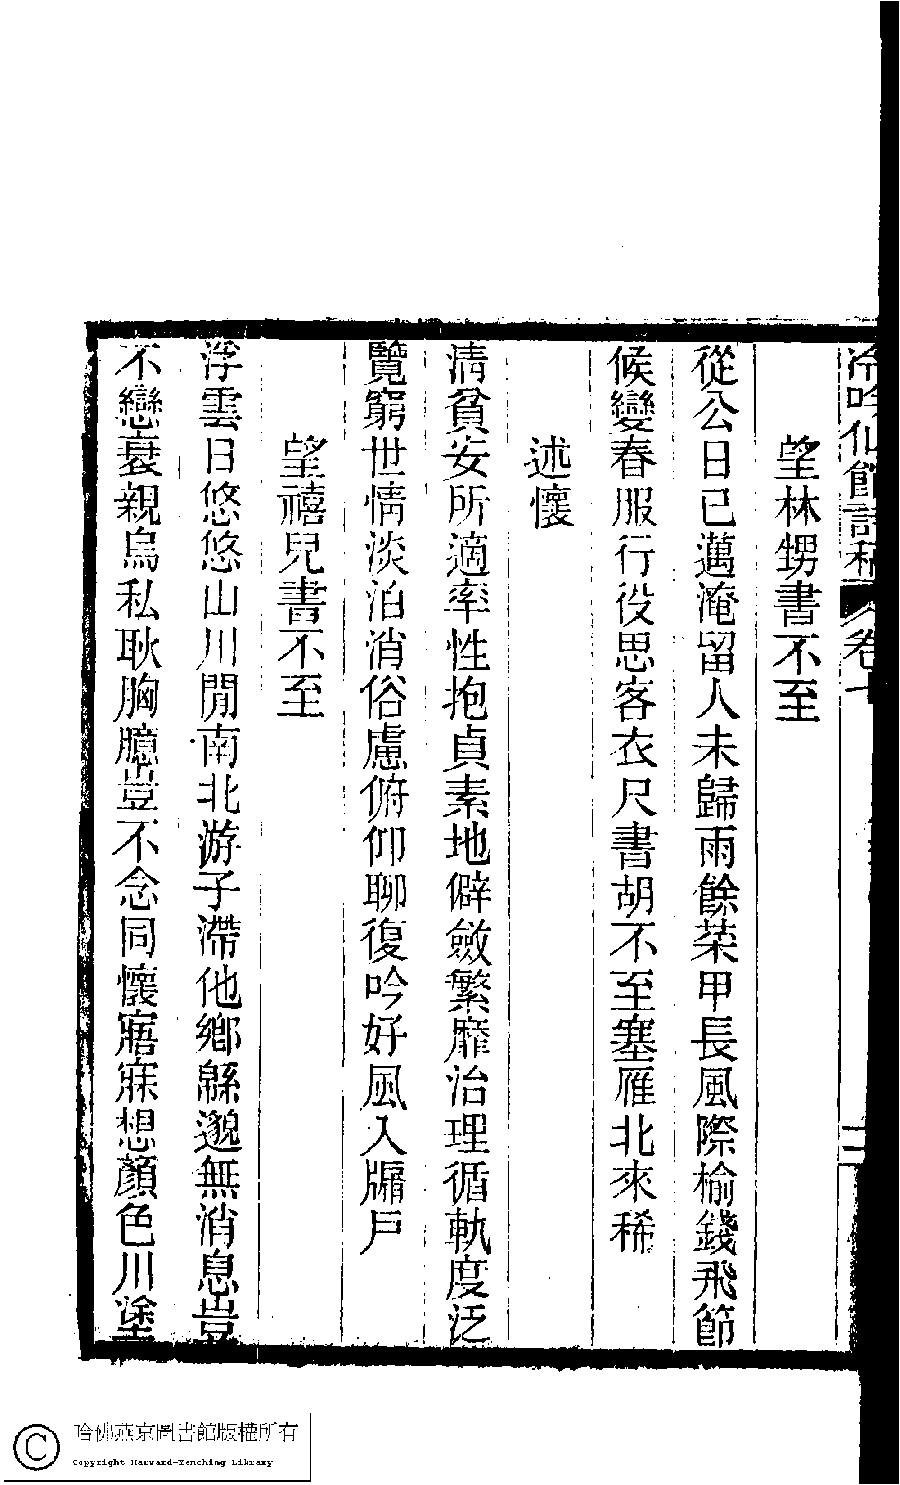 冷吟仙館詩稿 卷七
望林甥書不至
從公日已邁淹留人未歸雨餘菜甲長風際榆錢飛節
候變春服行役思客衣尺書胡不至塞雁北來稀
述懷
清貧安所適率性抱貞素地僻斂繁靡治理循軌度泛
覽窮世情淡泊消俗慮俯仰聊復吟好風入牖戶
望禧兒書不至
浮雲日悠悠山川閒南北游子滯他鄉緜邈無消息豈
不戀衰親烏私耿胸臆豈不念同懷寤寐想顏色川塗
哈佛燕京圖書館版權所有
Copyright Harvard-Yenching Library